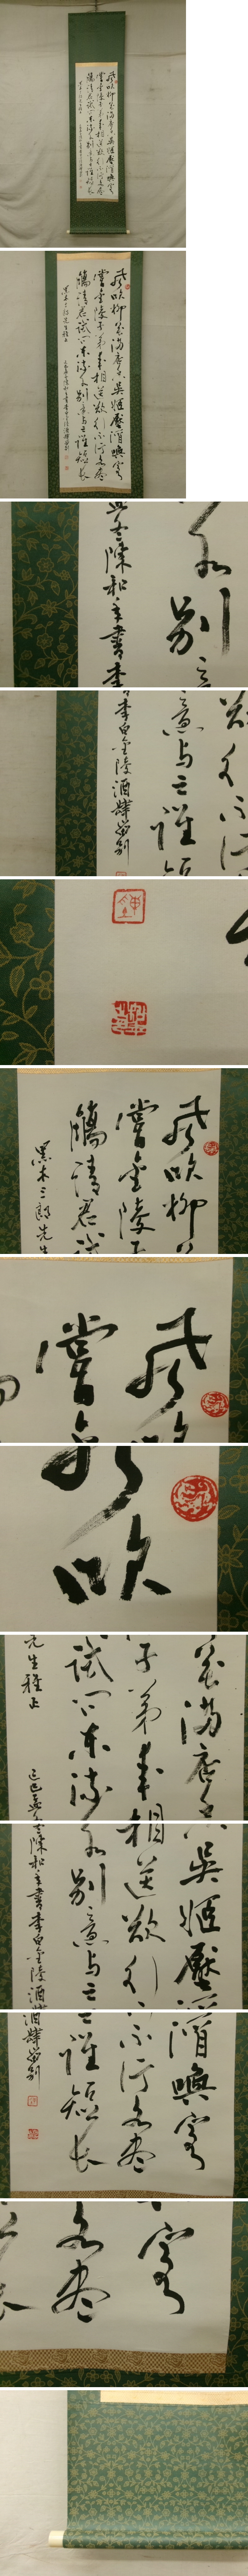 風吹柳花滿店香吳姬壓酒喚客
嘗金陵子弟來相送欲行不行各盡
觴請君試問東流水別意与之誰短長
黑木三郎先生雅正
己巳孟冬陳松年書李白金陵酒肆留別